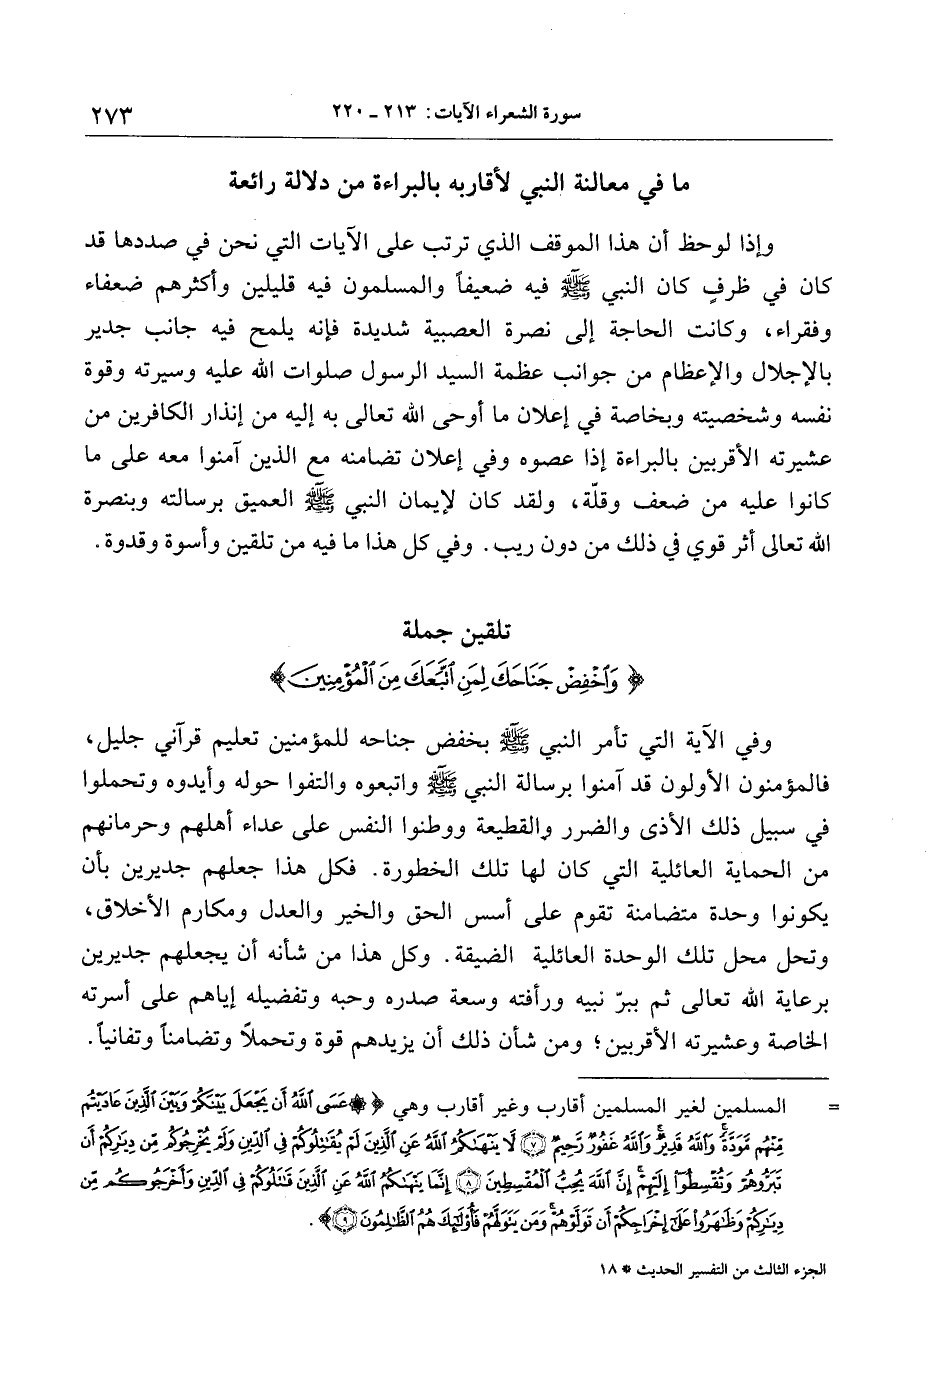 سورة الشعراء الآيات: ٢١٣ ـ ٢٢٠ ٢٧٣
ما في معالنة النبي لأقاربه بالبراءة من دلالة رائعة
وإذا لوحظ أن هذا الموقف الذي ترتب على الآيات التي نحن في صددها قد
كان في ظرفٍ كان النبي ﷺ فيه ضعيفاً والمسلمون فيه قليلين وأكثرهم ضعفاء
وفقراء، وكانت الحاجة إلى نصرة العصبية شديدة فإنه يلمح فيه جانب جدير
بالإجلال والإعظام من جوانب عظمة السيد الرسول صلوات الله عليه وسيرته وقوة
نفسه وشخصيته وبخاصة في إعلان ما أوحى الله تعالى به إليه من إنذار الكافرين من
عشيرته الأقربين بالبراءة إذا عصوه وفي إعلان تضامنه مع الذين آمنوا معه على ما
كانوا عليه من ضعف وقلّة، ولقد كان لإيمان النبي ﷺ العميق برسالته وبنصرة
الله تعالى أثر قوي في ذلك من دون ريب. وفي كل هذا ما فيه من تلقين وأسوة وقدوة.
تلقين جملة
﴿ وَٱخْفِضْ جَنَاحَكَ لِمَنِ ٱتَّبَعَكَ مِنَ ٱلْمُؤْمِنِينَ﴾
وفي الآية التي تأمر النبي ﷺ بخفض جناحه للمؤمنين تعليم قرآني جليل،
فالمؤمنون الأولون قد آمنوا برسالة النبي ﷺ واتبعوه والتفوا حوله وأيدوه وتحملوا
في سبيل ذلك الأذى والضرر والقطيعة ووطنوا النفس على عداء أهلهم وحرمانهم
من الحماية العائلية التي كان لها تلك الخطورة. فكل هذا جعلهم جديرين بأن
يكونوا وحدة متضامنة تقوم على أسس الحق والخير والعدل ومكارم الأخلاق،
وتحل محل تلك الوحدة العائلية الضيقة. وكل هذا من شأنه أن يجعلهم جديرين
برعاية الله تعالى ثم ببرّ نبيه ورأفته وسعة صدره وحبه وتفضيله إياهم على أسرته
الخاصة وعشيرته الأقربين؛ ومن شأن ذلك أن يزيدهم قوة وتحملاً وتضامناً وتفانياً.
= المسلمين لغير المسلمين أقارب وغير أقارب وهي ﴿ ۞ عَسَى ٱللَّهُ أَن يَجْعَلَ بَيْنَكُمْ وَبَيْنَ ٱلَّذِينَ عَادَيْتُم
مِّنْهُم مَّوَدَّةً ۚ وَٱللَّهُ قَدِيرٌ ۚ وَٱللَّهُ غَفُورٌ رَّحِيمٌ ﴿٧﴾ لَّا يَنْهَىٰكُمُ ٱللَّهُ عَنِ ٱلَّذِينَ لَمْ يُقَٰتِلُوكُمْ فِى ٱلدِّينِ وَلَمْ يُخْرِجُوكُم مِّن دِيَٰرِكُمْ أَن
تَبَرُّوهُمْ وَتُقْسِطُوٓا۟ إِلَيْهِمْ ۚ إِنَّ ٱللَّهَ يُحِبُّ ٱلْمُقْسِطِينَ ﴿٨﴾ إِنَّمَا يَنْهَىٰكُمُ ٱللَّهُ عَنِ ٱلَّذِينَ قَٰتَلُوكُمْ فِى ٱلدِّينِ وَأَخْرَجُوكُم مِّن
دِيَٰرِكُمْ وَظَٰهَرُوا۟ عَلَىٰٓ إِخْرَاجِكُمْ أَن تَوَلَّوْهُمْ ۚ وَمَن يَتَوَلَّهُمْ فَأُو۟لَٰٓئِكَ هُمُ ٱلظَّٰلِمُونَ ﴿٩﴾﴾.
الجزء الثالث من التفسير الحديث * ١٨